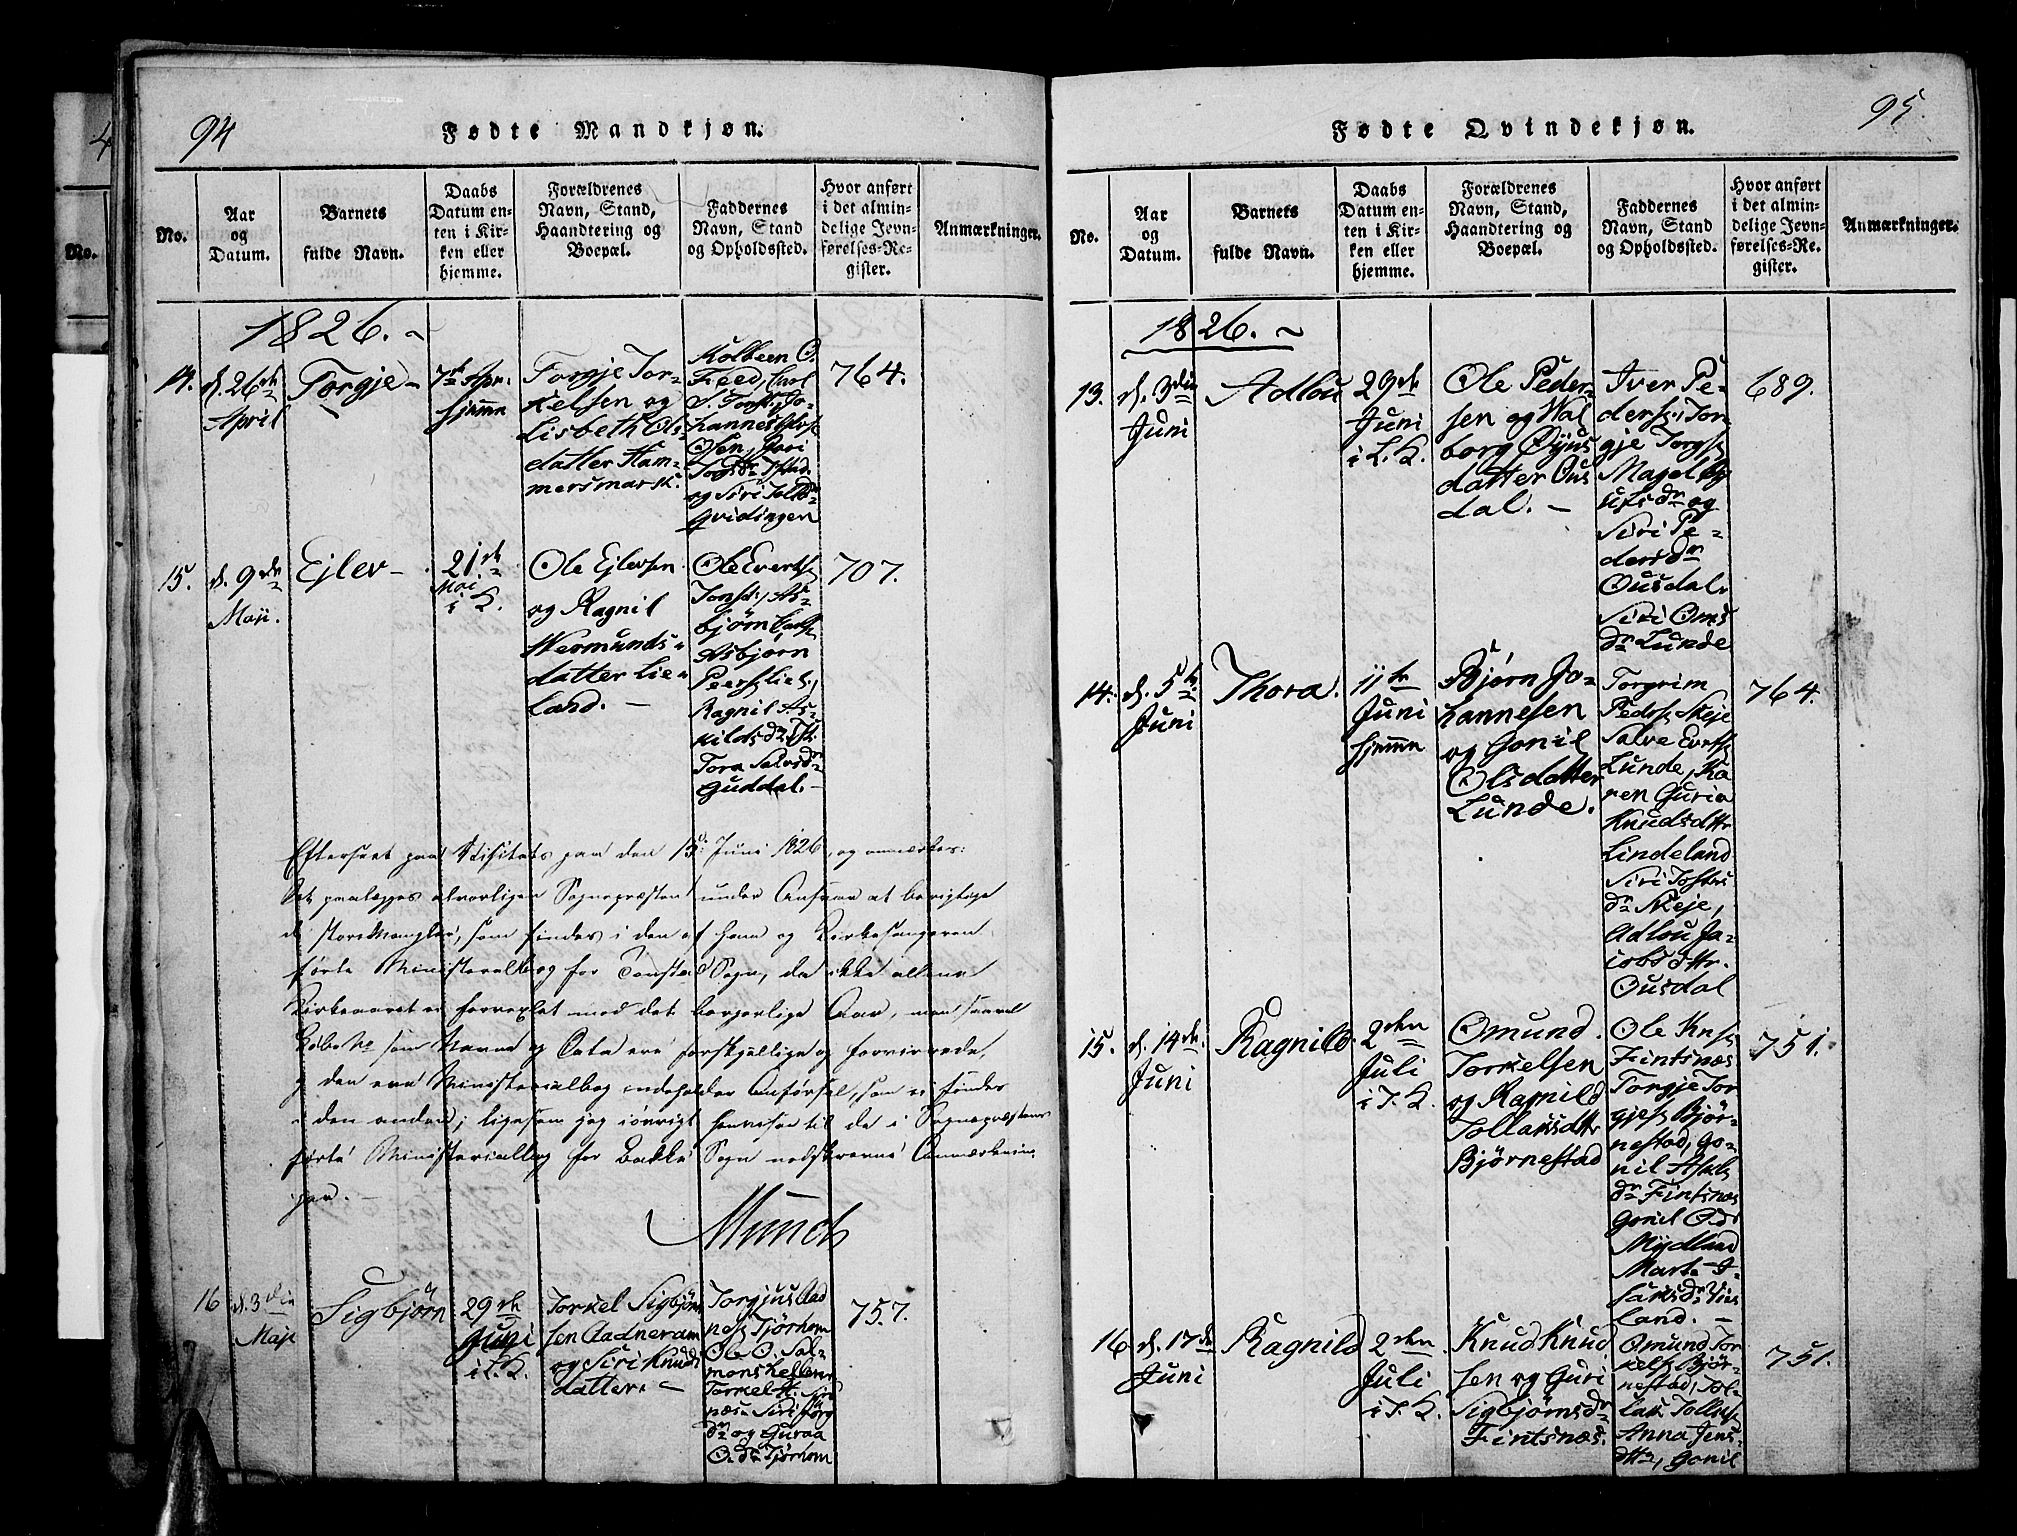 94
Fødte Mandkjøn.
No.
Aar
og
Datum.
Barnets
fulde Navn.
Daabs
Datum en-
ten i Kir-
ken eller
hjemme.
Forældrenes
Navn, Stand,
Haandtering og
Boepæl.
Faddernes
Navn, Stand
og Opholdssted.
Hvor anført
i det almin-
delige Jevn-
førelses-Re-
gister.
Anmærkninger.
1826.
14.
d. 26de
April
Torgje
hjemme
Torgje Tor-
kelsen og
Lisbeth Ols-
datter Ham-
mersmark.
Kolbeen O.
Feed, Carl
og Siri
Qvidingen
764.
15.
d. 9de
Maji.
Ejlev
21de
Mai
i K.
Ole Ejlevsen
og Ragnil
Wermunds-
datter Lie-
land.
Ole Evertss.
Tonst., As-
bjørn
Asbjørn
Peers. Liel.,
Ragnil As-
kildsdr.
Tora Salvsdr.
Guddal.
707.
Efterseet paa Visitats paa den 15de Juni 1826, og anmærkes:
Det paalægges alvorligen Sognepræsten under Ansvar at berigtige
de store Mangler, som findes i den af ham og Kirkesangeren
førte Ministerialbog for Tonstad Sogn, da ikke allene
Kirkeaaret er forvexlet med det borgerlige Aar, men saavel
Løbe No som Navne og Data ere forskjellige og forvirrede,
og den ene Ministerialbog indeholder Anførsel, som ei findes
i den anden; ligesom jeg iøvrigt henviser til de i Sognepræstens
førte Ministerialbog for Bakke Sogn nedskrevne Anmærknin-
ger.
Munch
16
d. 3die
Maji
Sigbjørn
29de
Juni
i L. K.
Torkel Sigbjørn
sen Aadneram
og Siri Knuds
datter.
Torgjus Aad
ness. Tjørhom
Ole O. Sal-
monskelleren
Torkel H. Sir
næs. Siri
dr. og Guraa
O. dr. Tjørhom
757.
95.
Fødte Qvindekjøn.
No.
Aar
og
Datum.
Barnets
fulde Navn.
Daabs
Datum en-
ten i Kir-
ken eller
hjemme.
Forældrenes
Navn, Stand,
Haandtering og
Boepæl.
Faddernes
Navn, Stand
og Opholdssted.
Hvor anført
i det almin-
delige Jevn-
førelses-Re-
gister.
Anmærkninger.
1826.
13.
d. 3die
Juni
Adlou
29de
Juni
i L. K.
Ole Peder-
sen og Wal
borg Øyus
datter Ous
dal.
Iver Pe-
ders., Tor-
gje Torgs.
dr. og
Siri Pe-
dersdr.
Ousdal.
Siri Oms
dr. Lunde
689.
14.
d. 5te
Juni
Thora.
11te
Juni
hjemme
Bjørn Jo-
hannesen
og Gonil
Olsdatter
Lunde.
Torgrim
Peders. Skeje
Salve Everts.
Lunde, Ka
ren Guria
Knudsdttr.
Lindeland
Siri Tostes
dr. Skeje,
Adlou Ja-
cobsdttr.
Ousdal
764.
15.
d. 14de
Juni
Ragnild
2den
Juli
i T. K.
Omund
Torkelsen
og Ragnild
Tollaksdttr
Bjørnestad
Ole Kns.
Fintsnæs
Torgje Tor-
gjes. Bjør-
nestad, Go-
nil
dr. Fintsnæs
Gonil O. dr.
Mydland
land.
751.
16
d. 17de
Juni
Ragnild
2den
Juli
i T. K.
Knud Knud
sen og Guri
Sigbjørnsdr.
Fintsnæs.
Omund Tor
kels. Bjør-
nestad, Tol-
lak Tollaks.
Anna Jens-
dttr, Gonil
751.